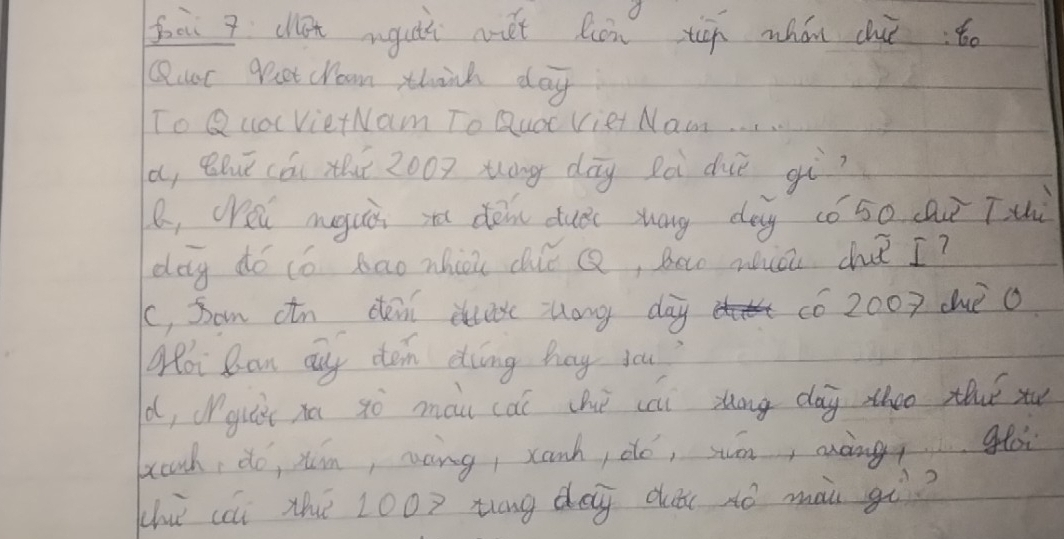 Bài 7: Một người viết liên tiếp nhóm chữ: to
Quoc Viet Nam thành dãy
To Quoc VietNam To Quoc Viet Nam....
a, Chữ cái thứ 2007 trong dãy là chữ gì?
b, Nếu người ta đếm được trong dãy có 50 chữ T thì
dãy đó có bao nhiêu chữ Q, bao nhiêu chữ I?
c, Bạn An đếm được trong dãy có 2007 chữ O
Hỏi bạn ấy đếm đúng hay sai?
d, Người ta tô màu các chữ cái trong dãy theo thứ tự
xanh, đỏ, tím, vàng, xanh, đỏ, tím, vàng, .... Hỏi
chữ cái thứ 2007 trong dãy được tô màu gì?